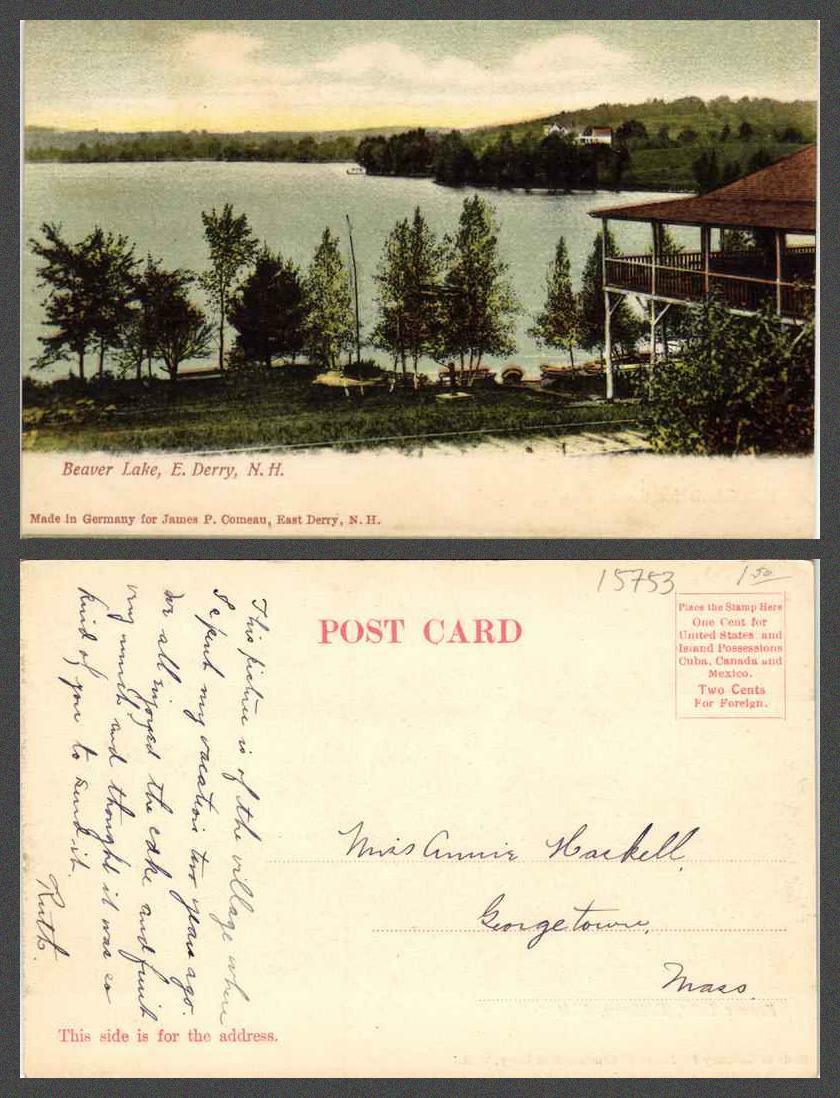 Beaver Lake, E. Derry, N. H.
Made in Germany for James P. Comeau, East Derry, N. H.
15753
1.50
POST CARD
Place the Stamp Here
One Cent for
United States and
Island Possessions
Cuba, Canada and
Mexico.
Two Cents
For Foreign.
This picture is of the village where
I spent my vacation two years ago.
We all enjoyed the cake and fruit
very much and thought it was so
kind of you to send it.
Ruth.
Miss Annie Haskell,
Georgetown,
Mass.
This side is for the address.